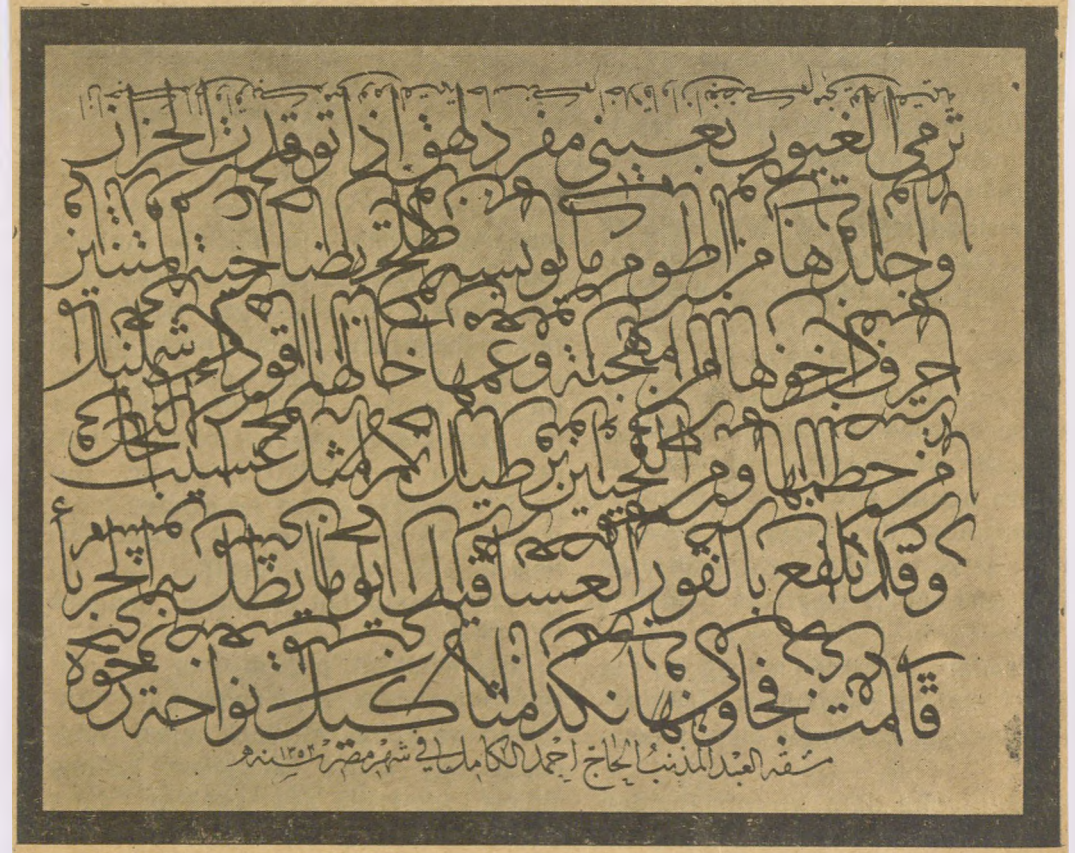 ترمي الغيوب بعيني مفرد لهق اذا توقدت الحزاز
وجلدها من اطوم ما يؤيسه طلح بضاحية المتنين
حرف اخوها ابوها من مهجنة وعمها خالها قوداء شمليل
من خطمها ومن اللحيين برطيل تمر مثل عسيب النخل
وقد تلفع بالقور العساقيل يوما يظل به الحربا
قامت فجاوبها نكد مثاكيل نواحة رخوة
مشقه العبد المذنب الحاج احمد الكامل في شهر مصر سنه ١٣٥٢